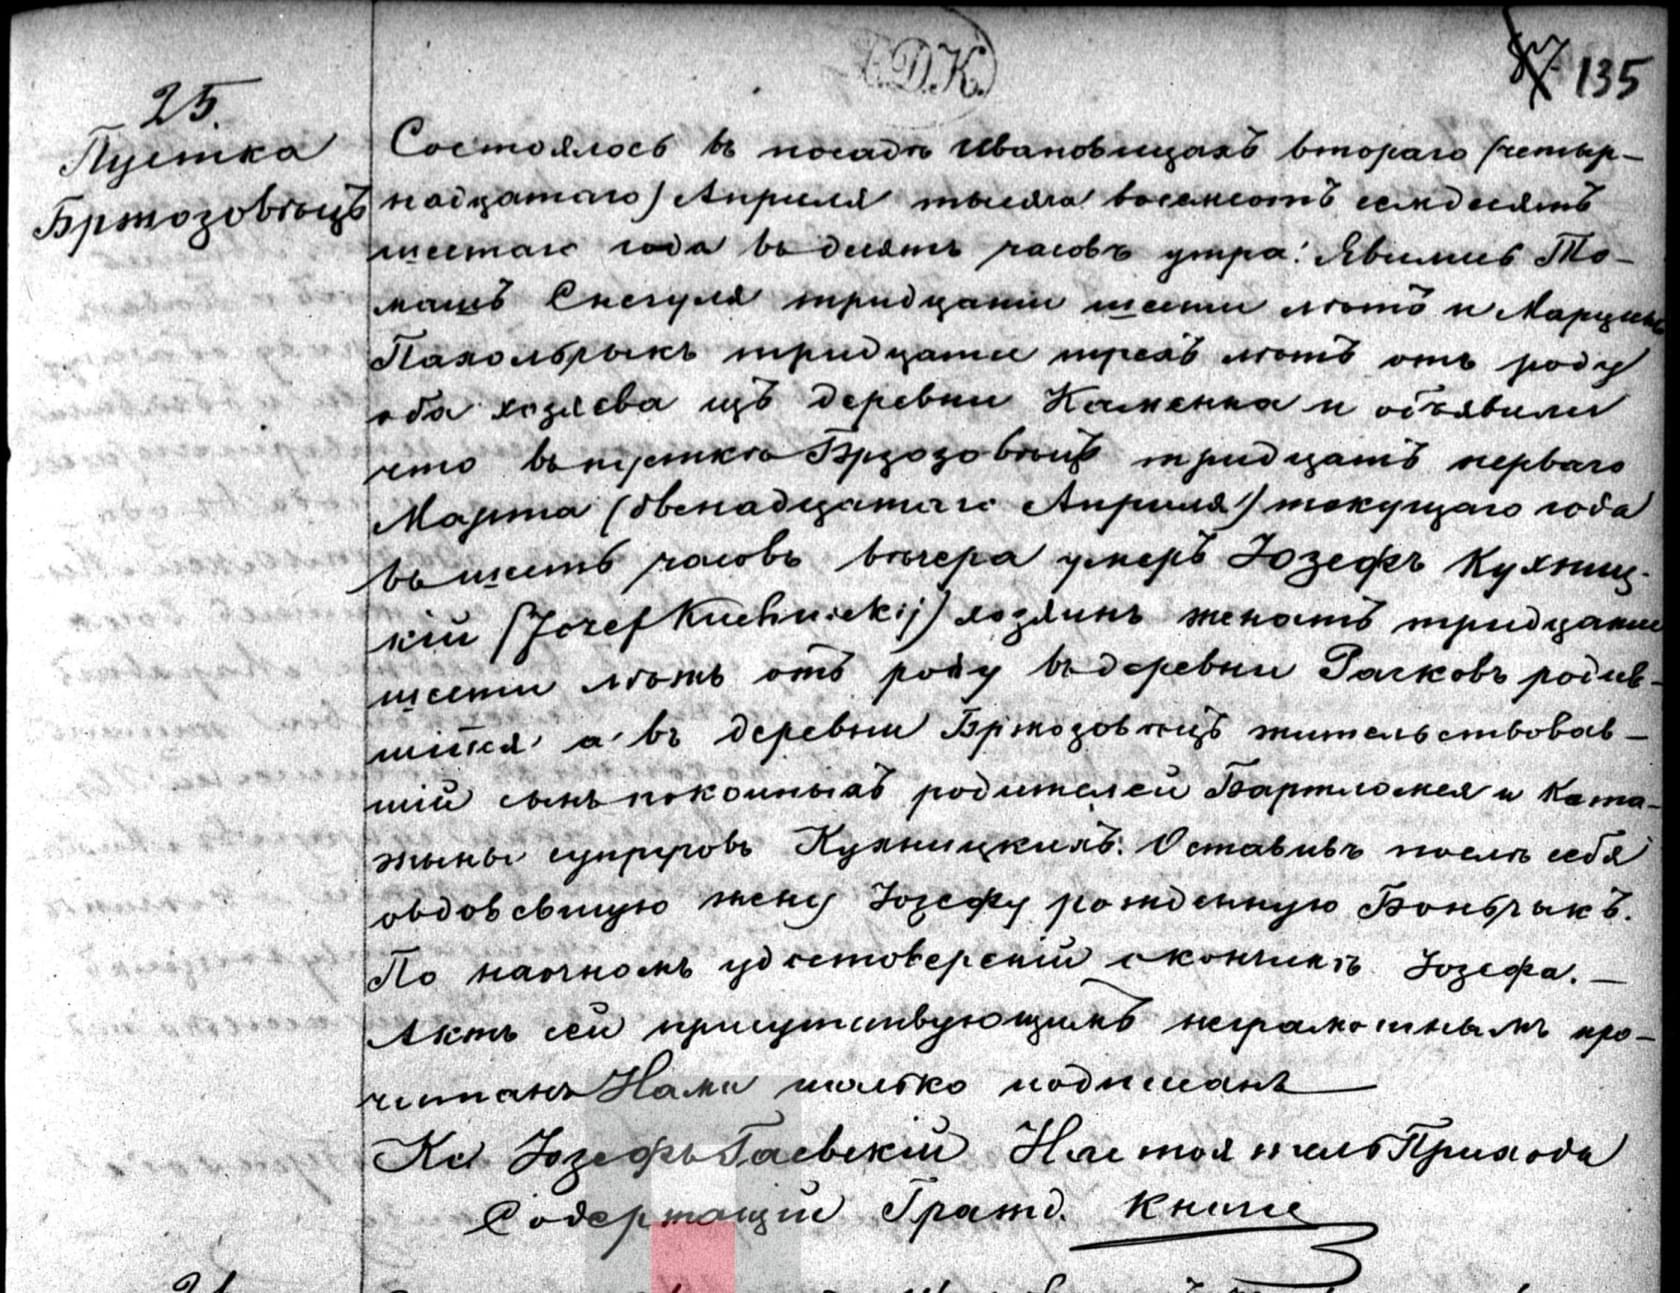 Д.К.
87 135
25.
Пустка
Бржозовѣцъ
Состоялось въ посадѣ Ивановицахъ втораго (четыр-
надцатаго) Апрѣля тысяча восемсотъ семдесятъ
шестаго года въ десять часовъ утра. Явились То-
машъ Снегуля тридцати шести лѣтъ и Марцинъ
Пахольчыкъ тридцати трехъ лѣтъ отъ роду
оба хозяева изъ деревни Каменка и объявили
что въ пусткѣ Брзозовѣцъ тридцать перваго
Марта (двенадцатаго Апрѣля) текущаго года
въ шесть часовъ вѣчера умеръ Іозефъ Кухниц-
кій (Jozef Kuchnickij) хозяинъ женатъ тридцати
шести лѣтъ отъ роду въ деревни Рачковъ родив-
шійся а въ деревни Бржозовѣцъ жительствовав-
шій сынъ покойныхъ родителей Бартломея и Ката-
жыны супруговъ Кухницкихъ. Оставивъ послѣ себя
овдовевшую жену Іозефу рожденную Бончыкъ.
По наочномъ удостоверении скончинѣ Іозефа.—
Актъ сей присутствующимъ неграмотнымъ про-
читанъ Нами только подписанъ
Кс Іозефъ Гаевскій Настоятель Прихода
Содержащій Гражд. Книги